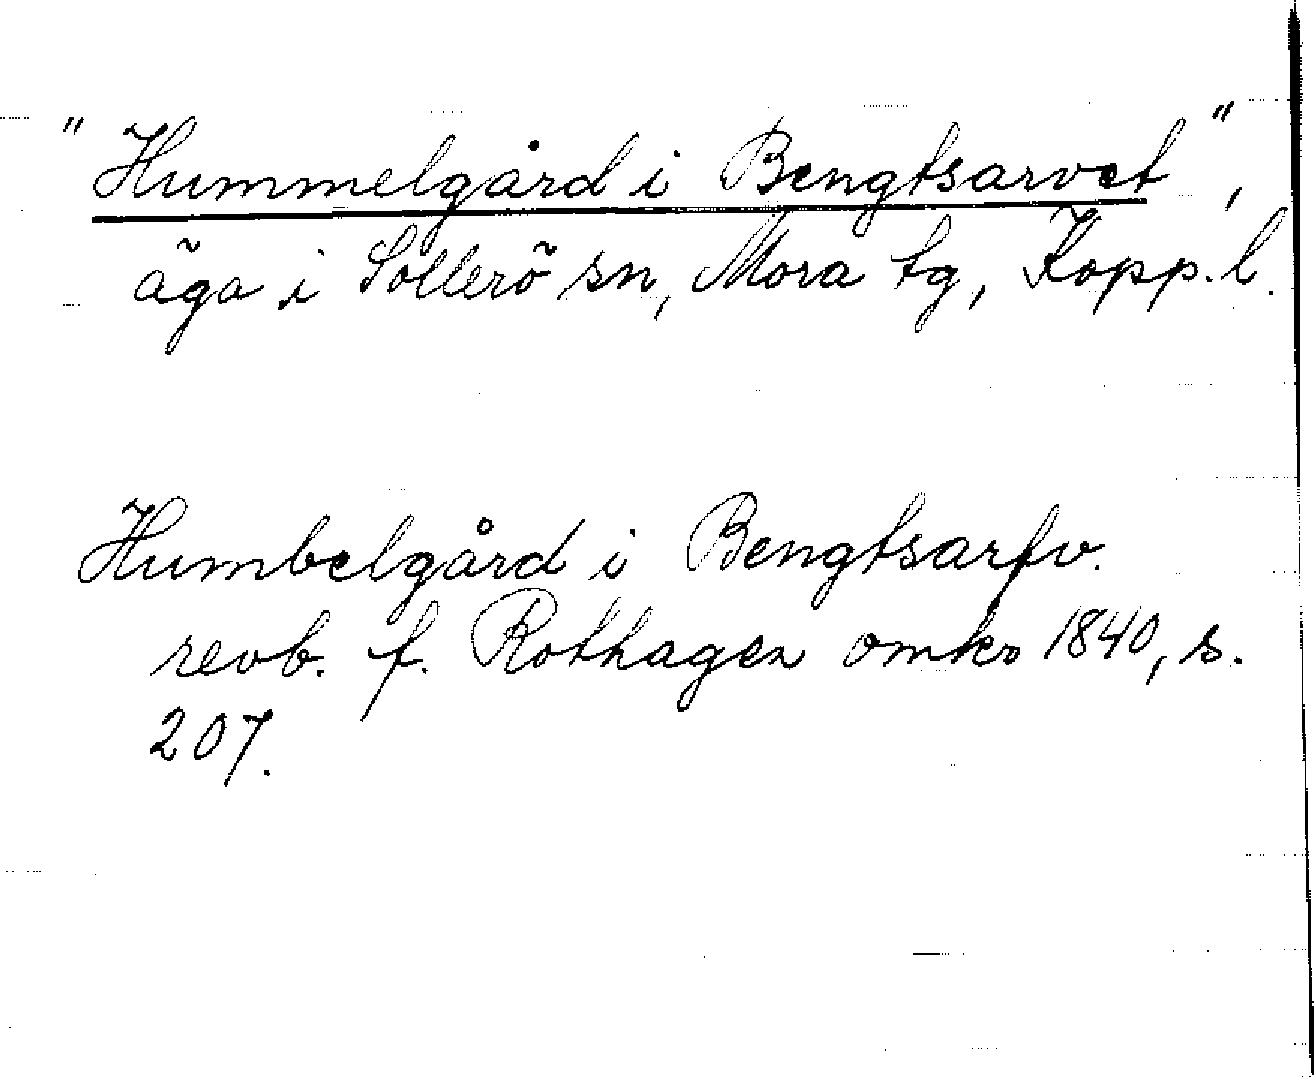 "Hummelgård i Bengtsarvet",
äga i Sollerö sn, Mora tg, Kopp. l.
Humbelgård i Bengtsarfv.
revb. f. Rothagen omkr 1840, s.
207.